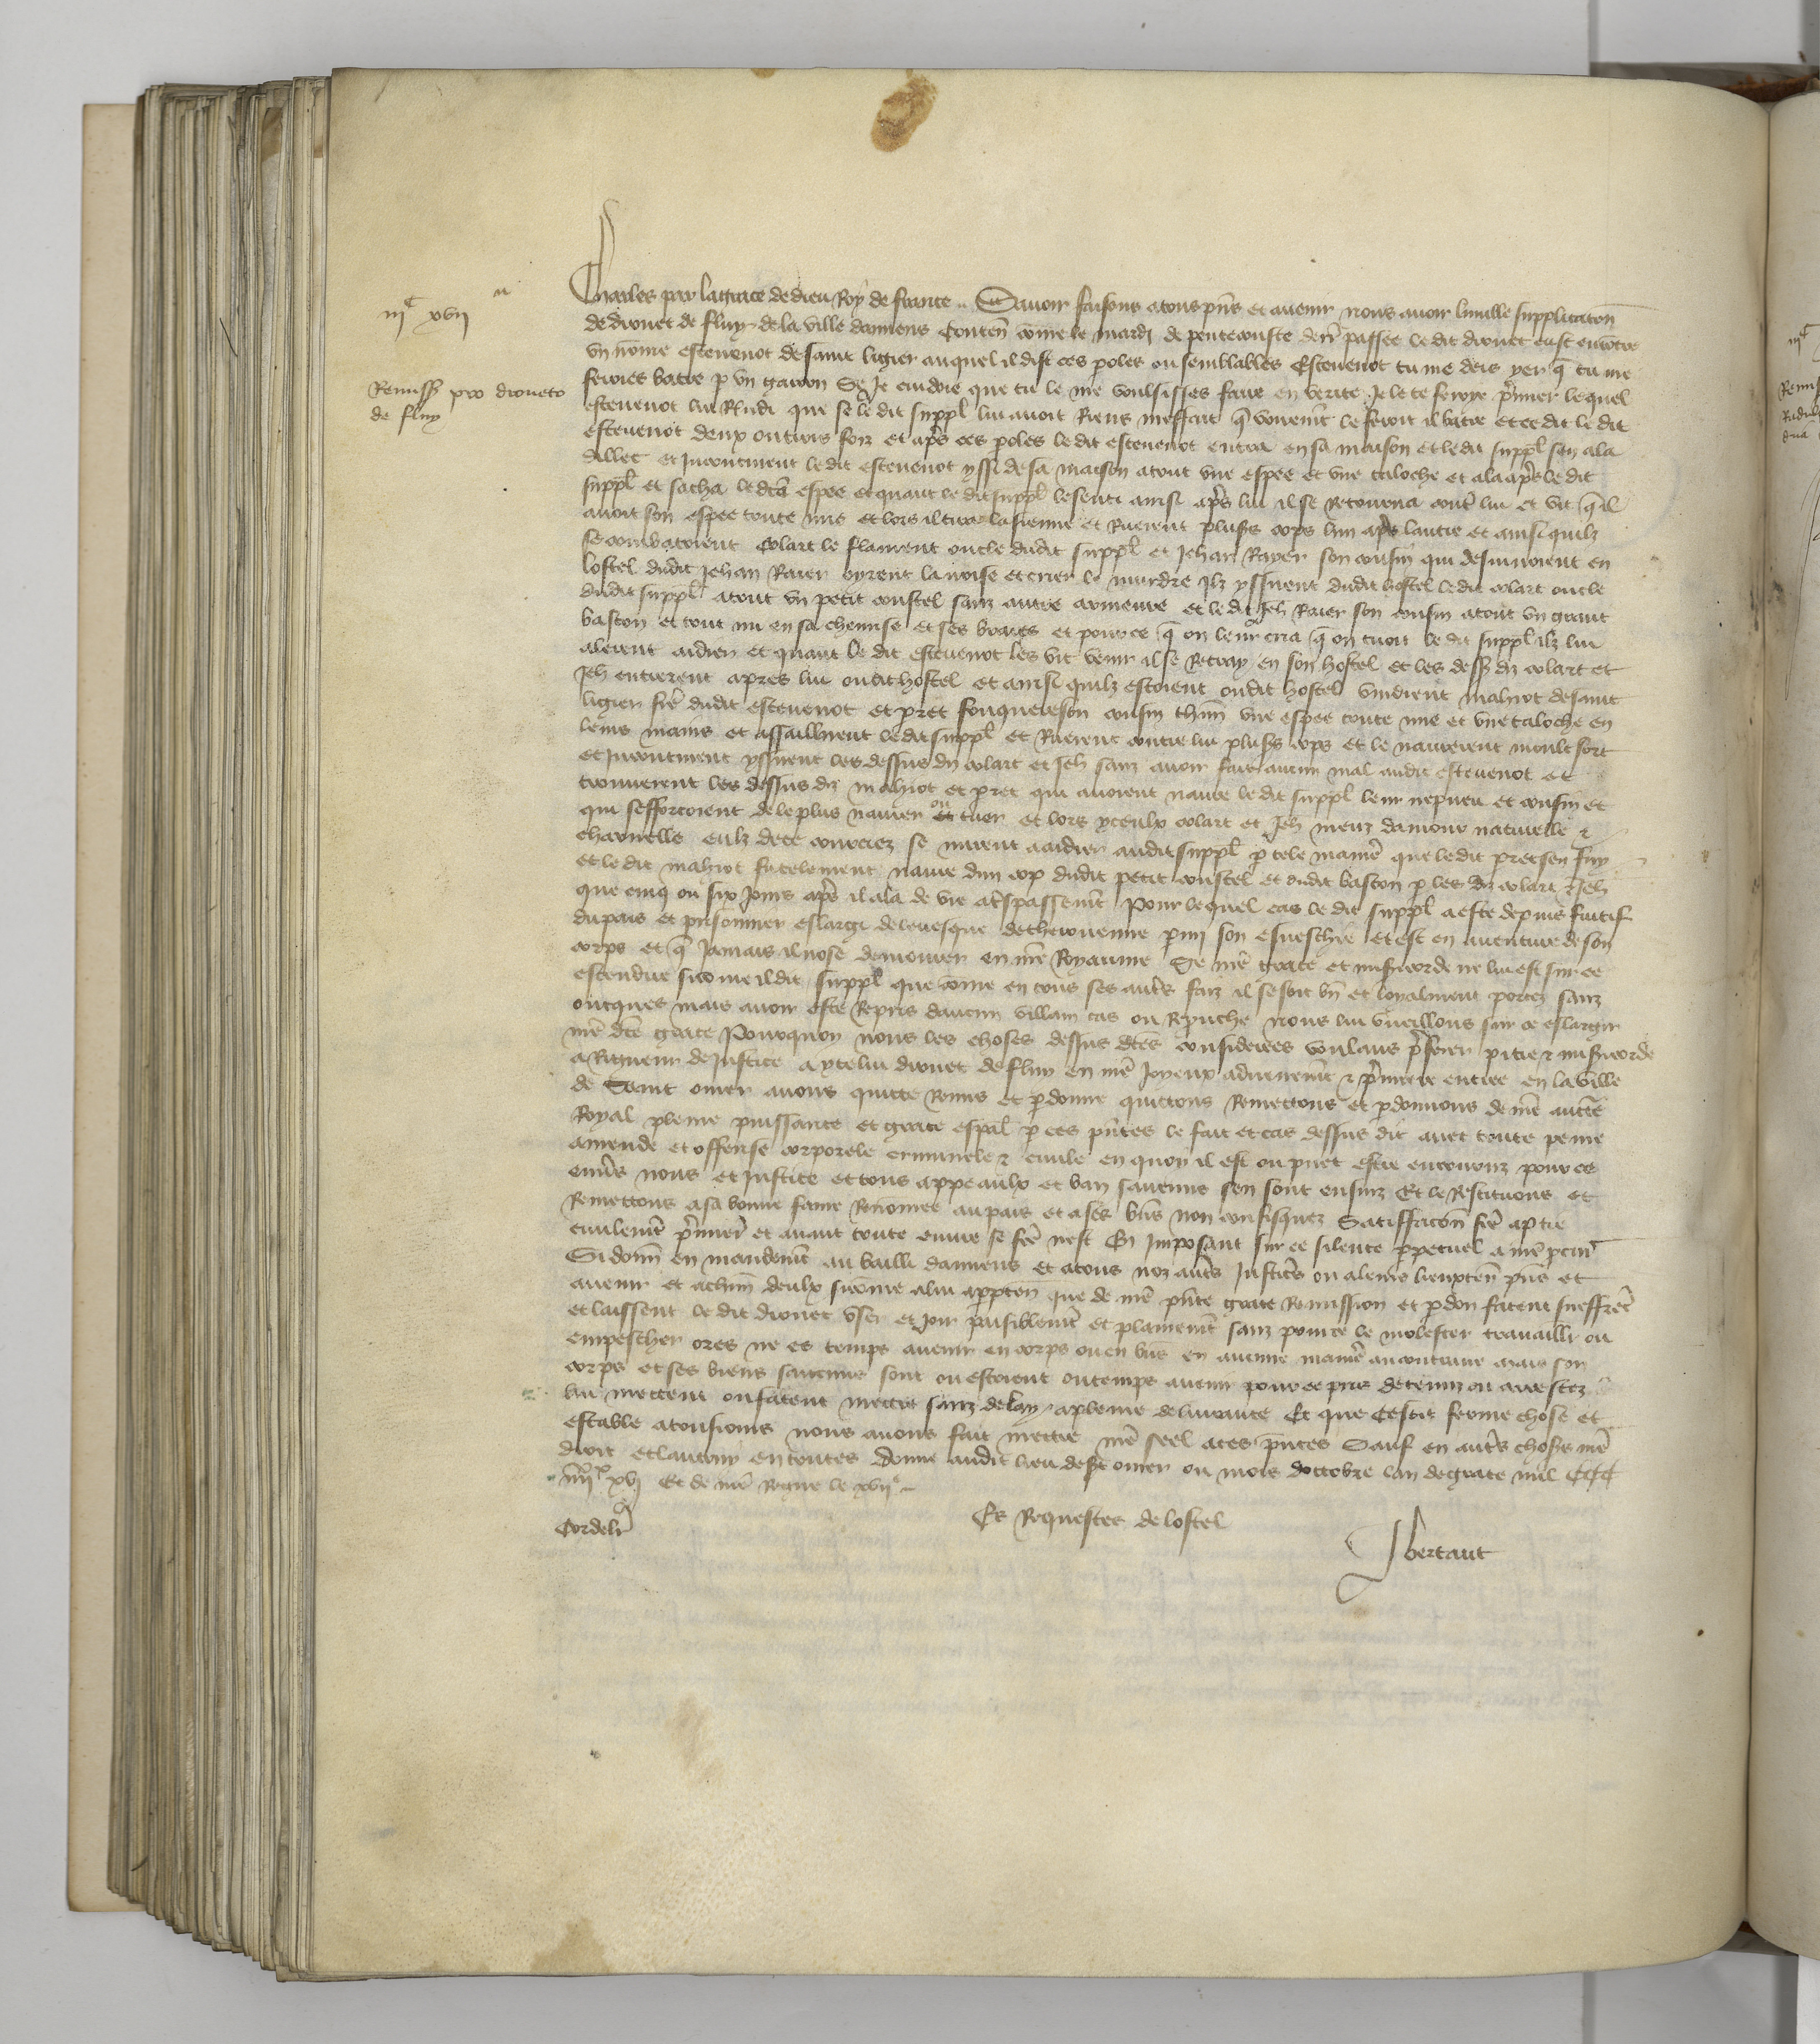 iijᶜ xvij
Remissio pro droueto
de fluy
Charles par la grace de dieu Roy de france. Sauoir faisons a tous pñs et auenir nous auoir lumille supplicacon
de drouet de fluy de la ville damiens Conteñ cõme le mardj de penthecouste derr̃ passee le dit drouet eust encõtre
vn nõme esteuenot de saint ligier auquel il dist ces poles ou semblables Esteuenot tu me deis yer q̃ tu me
feroies batre p vn garcon Se Je cuidoie que tu le me voulsisses faire en verite Je le te feroye p̃mier lequel
esteuenot lui R̃ndi que se le dit suppl̃ lui auoit Riens meffait q̃ vrãiem̃t le feroit il batre et ce dit le dit
esteuenot deux ou trois foiz et ap̃s ces poles le dit esteuenot entra en sa maison et le dit suppl̃ sen ala
dillec et Incontinent le dit esteuenot yssi de sa maison atout vne espee et vne taloche et ala ap̃s le dit
suppl̃ et sacha le dc̃e espee et quant le dit suppl̃ le senti ainsi ap̃s lui il se retourna contr̃ lui et vit q̃ il
auoit son espee toute nue et lors il tira la sienne et Ruerent plus̃s cops lun ap̃s lautre et ainsi quilz
se combatoient Colart le flament oncle dudit suppl̃ et Jehan Raier son cousin qui demouroient en
lostel dudit Jehan Raier oyrent la noise et crier le murdre Ilz yssirent dudit hostel le dit colart oncle
dudit suppl̃ atout vn petit coustel sanz autre armeure et le dit Jeh̃ Raier son cousin atout vn grant
baston et tout nu en sa chemise et ses braies et pour ce q̃ on leur cria q̃ on tuoit le dit suppl̃ ilz lui
alerent aidier et quant le dit esteuenot les vit venir il se Retray en son hostel et les dess̃ diz colart et
Jeh̃ entrerent apres lui oudit hostel et ainsi quilz estoient oudit hostel vindrent mahiot de saint
ligier fr̃e dudit esteuenot et p̃ret fouquereson cousin chũn vne espee toute nue et vne taloche en
leurs mains et assaillirent le dit suppl̃ et Ruerent contre lui plus̃s cops et le naurerent moult fort
et Incontinent yssirent les dessus diz colart et Jeh̃ sanz auoir fait aucun mal audit esteuenot et
trouuerent les dessus diz mahiot et p̃ret qui auoient naure le dit suppl̃ leur nepueu et cousin et
qui sefforcoient de le plus naurer ou tuer et lors yceulx colart et Jeh̃ meuz damour naturelle et
charnelle eulz de ce courciez se mirent a aidier audit suppl̃ p tele manier̃ que le dit p̃ret sen fuy
et le dit mahiot fu telement naure dun cop dudit petit coustel et dudit baston p les diz colart et Jeh̃
que cinq ou six Jours ap̃s il ala de vie a tr̃spassem̃t Pour lequel cas le dit suppl̃ a este depuis fuitif
du pais et prisonnier eslargi de leuesque de therouenne pmi son esueschie et est en auenture de son
corps et q̃ Jamais il nose demourer en nr̃e Royaume Se nr̃e grace et mis̃icorde ne lui est sur ce
estendue sicõme il dit suppl̃ que cõme en tous ses autr̃s faiz il se soit bñ et loyalment portez sanz
oncques mais auoir este Repris daucun villain cas ou Reprouche nous lui vueillons sur ce eslargir
nr̃e dc̃e grace Pourquoy nous les choses dessus dc̃es considerees voulans p̃ferer pitie et mis̃icorde
a Rigueur de Justice a ycelui drouet de fluy en nr̃e Joyeux aduenem̃t et p̃miere entree en la ville
de Saint omer auons quitte Remis et pdonne quittons Remettons et pdonnons de nr̃e auctẽ
Royal plaine puissance et grace espãl p ces p̃ntes le fait et cas dessus dit auec toute peine
amende et offense corporele criminele et ciuile en quoy il est ou puet estre encouruz pour ce
enũs nous et Justice et tous appeaulx et ban saucuns sen sont ensuiz Et le Restituons et
Remettons a sa bonne fame Renõmee au pais et a ses bñs non confisquez Satiffacõn fcẽ a ptie
ciuilem̃t p̃mier̃ et auant toute euure se fcẽ nest En Imposant sur ce silence ppetuel a nr̃e pcur̃
Si donñ en mandem̃t au bailli damiens et a tous noz autr̃s Justicr̃s ou a leurs lieuxteñ pñs et
auenir et a chũn deulx sicõme a lui apptendra que de nr̃e p̃nte grace Remission et pdon facent sueffrent̃
et laissent le dit drouet vser et Joir paisiblem̃t et plainem̃t sanz pour ce le molester trauaillr̃ ou
empescher ores ne es temps auenir en corps ou en bñs en aucune manier̃ au contraire mais son
corps et ses biens saucuns sont ou estoient ou temps auenir pour ce pris detenuz ou arrestez
lui mettent ou facent mettre sanz delay a pleine deliurance Et que ce soit ferme chose et
estable a tousiours nous auons fait mettre nr̃e seel a ces p̃ntes Sauf en autr̃s choses nr̃e
droit et lautruy en toutes Donne audit lieu de st̃ omer ou mois doctobre lan de grace mil CCC
iiijˣˣ xvj Et de nr̃e Regne le xvijᵉ
Es Requestes de lostel
Cordelr̃
J bertaut